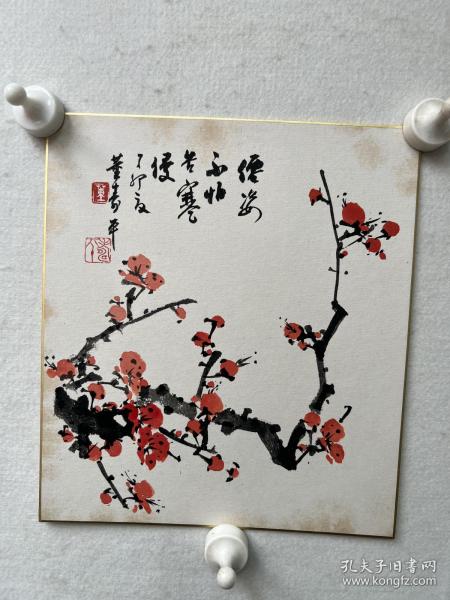 傲姿
不怕
苦寒
侵
丁卯夏
董寿平
董
孔夫子旧书网
www.kongfz.com